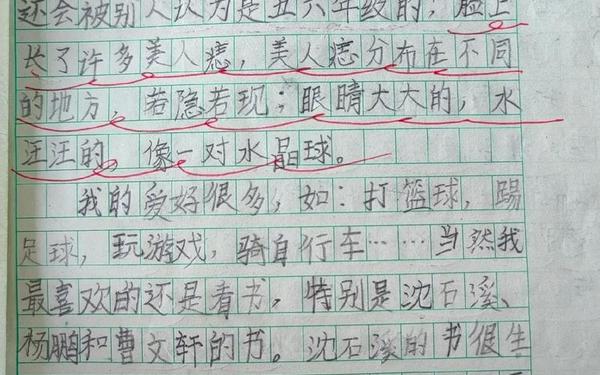 还会被别人认为是五六年级的；脸上
长了许多美人痣，美人痣分布在不同
的地方，若隐若现；眼睛大大的，水
汪汪的，像一对水晶球。
我的爱好很多，如：打篮球，踢
足球，玩游戏，骑自行车……当然我
最喜欢的还是看书，特别是沈石溪、
杨鹏和曹文轩的书。沈石溪的书很生